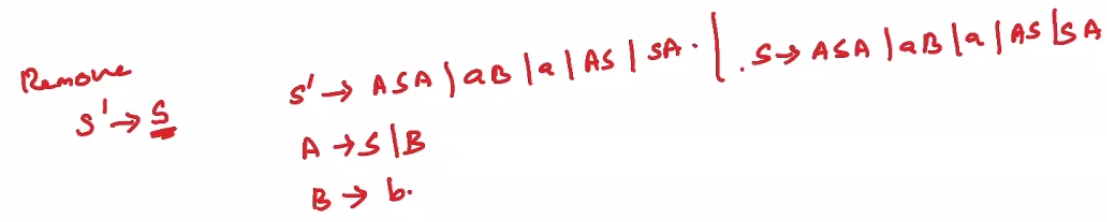 Remove S' → ASA | aB | a | AS | SA . | . S → ASA | aB | a | AS | SA
S' → S
A → S | B
B → b.